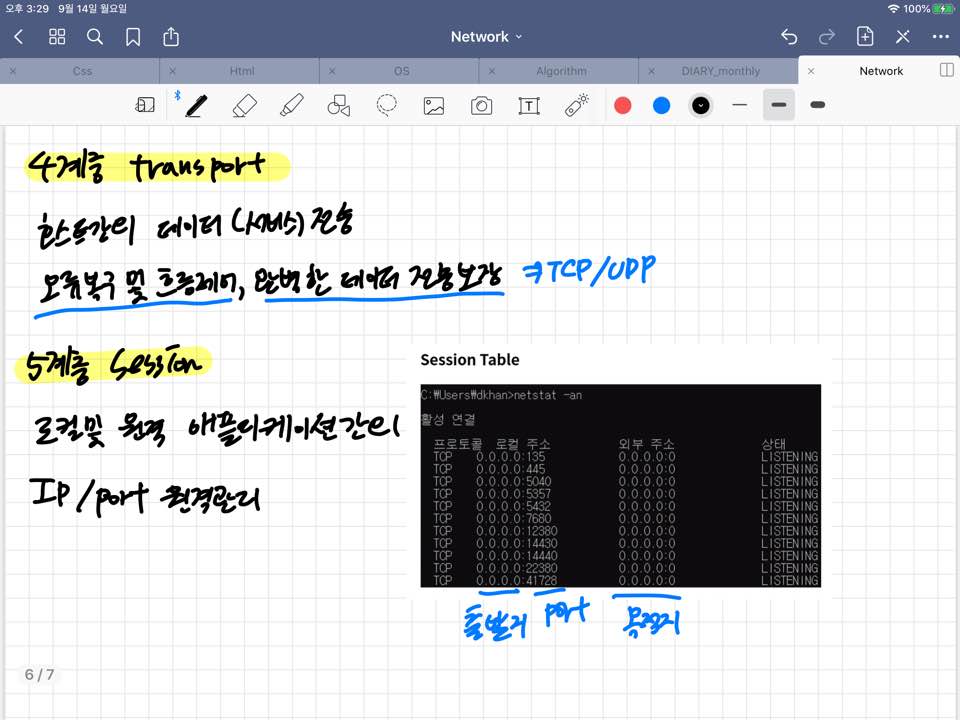 오후 3:29 9월 14일 월요일
100%
Network
Css
Html
OS
Algorithm
DIARY_monthly
Network
4계층 transport
호스트간의 데이터(서비스)전송
오류복구 및 흐름제어, 완벽한 데이터 전송보장 ⇒TCP/UDP
5계층 Session
로컬및 원격 애플리케이션간의
IP/port 원격관리
Session Table
C:₩Users₩dkhan>netstat -an
활성 연결
프로토콜 로컬 주소 외부 주소 상태
TCP 0.0.0.0:135 0.0.0.0:0 LISTENING
TCP 0.0.0.0:445 0.0.0.0:0 LISTENING
TCP 0.0.0.0:5040 0.0.0.0:0 LISTENING
TCP 0.0.0.0:5357 0.0.0.0:0 LISTENING
TCP 0.0.0.0:5432 0.0.0.0:0 LISTENING
TCP 0.0.0.0:7680 0.0.0.0:0 LISTENING
TCP 0.0.0.0:12380 0.0.0.0:0 LISTENING
TCP 0.0.0.0:14430 0.0.0.0:0 LISTENING
TCP 0.0.0.0:14440 0.0.0.0:0 LISTENING
TCP 0.0.0.0:22380 0.0.0.0:0 LISTENING
TCP 0.0.0.0:41728 0.0.0.0:0 LISTENING
출발지 port 목적지
6 / 7